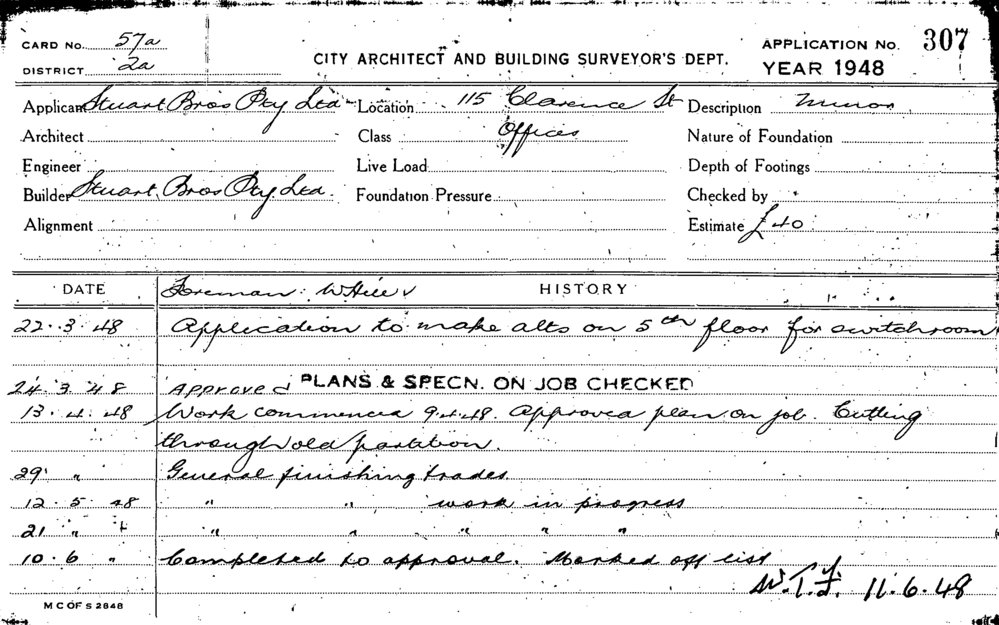 CARD No. 57a
DISTRICT 2a
CITY ARCHITECT AND BUILDING SURVEYOR'S DEPT.
APPLICATION No. 307
YEAR 1948
Applicant Stuart Bros Pty Ltd Location 115 Clarence St Description Minor
Architect Class Offices Nature of Foundation
Engineer Live Load Depth of Footings
Builder Stuart Bros Pty Ltd. Foundation Pressure Checked by
Alignment Estimate £40
DATE Foreman: W Hill HISTORY
22.3.48 Application to make alts on 5th floor for switchroom
24.3.48 Approved PLANS & SPECN. ON JOB CHECKED
13.4.48 Work commenced 9.4.48. Approved plan on job. Cutting
through old partition.
29 " General finishing trades.
12.5.48 " " work in progress
21 " " " " " "
10.6 " Completed to approval. Marked off list
W.T.F. 11.6.48
M C OF S 2848